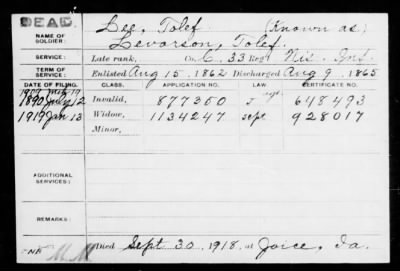 DEAD.
Lee, Tolef (Known as)
NAME OF SOLDIER: Levorson, Tolef.
SERVICE: Late rank, Co. C, 33 Reg't Wis. Inf.
TERM OF SERVICE: Enlisted Aug 15, 1862 Discharged Aug 9, 1865
DATE OF FILING. CLASS. APPLICATION NO. LAW. CERTIFICATE NO.
1890 July 12 Invalid, 877350 648493
1919 Jan 13 Widow, 1134247 Sept. 928017
Minor,
ADDITIONAL SERVICES:
REMARKS:
Died Sept 30, 1918, at Joice, Ia.